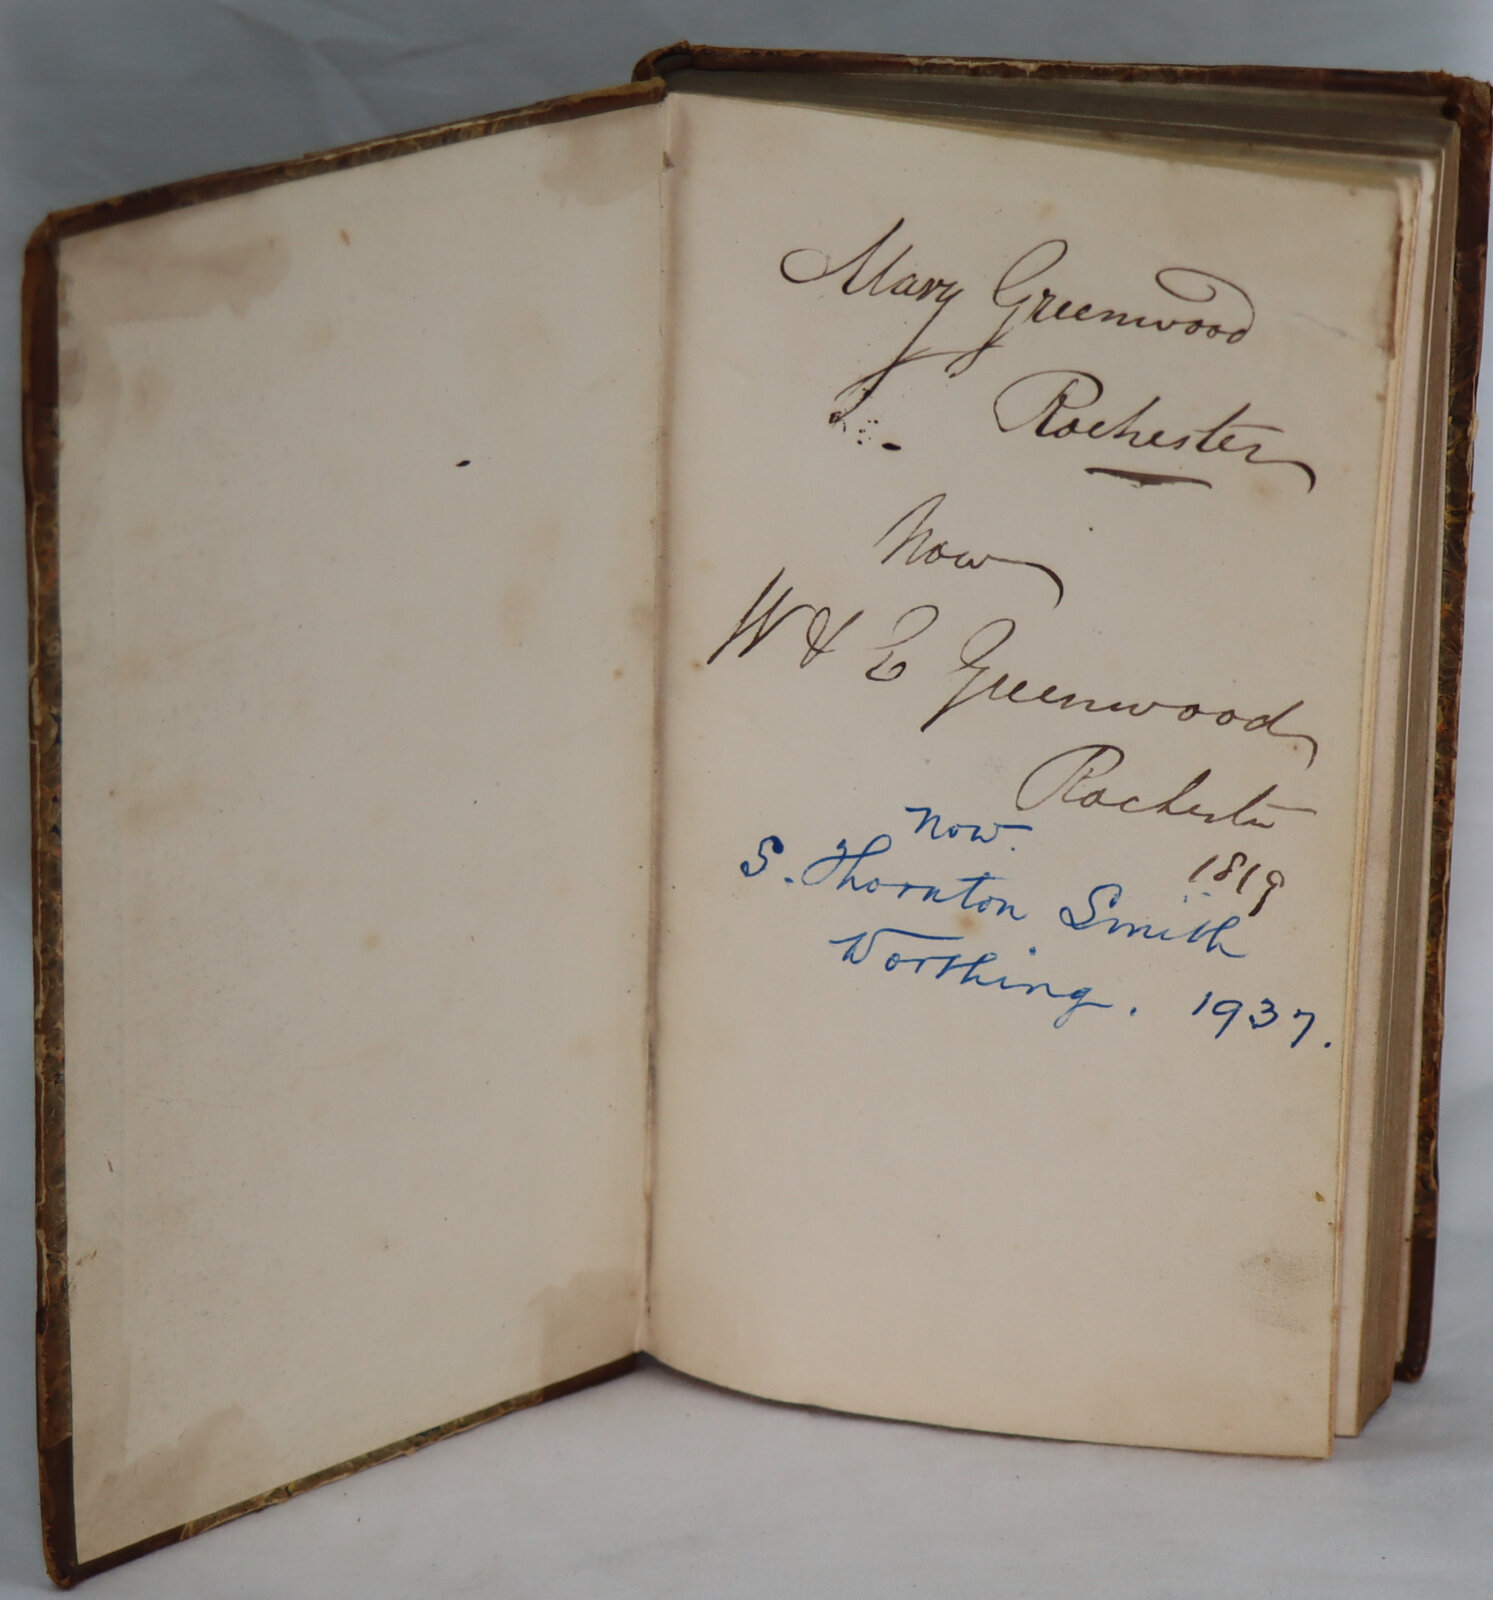 Mary Greenwood
Rochester
Now
W & E Greenwood
Rochester
1819
now.
S. Thornton Smith
Worthing. 1937.